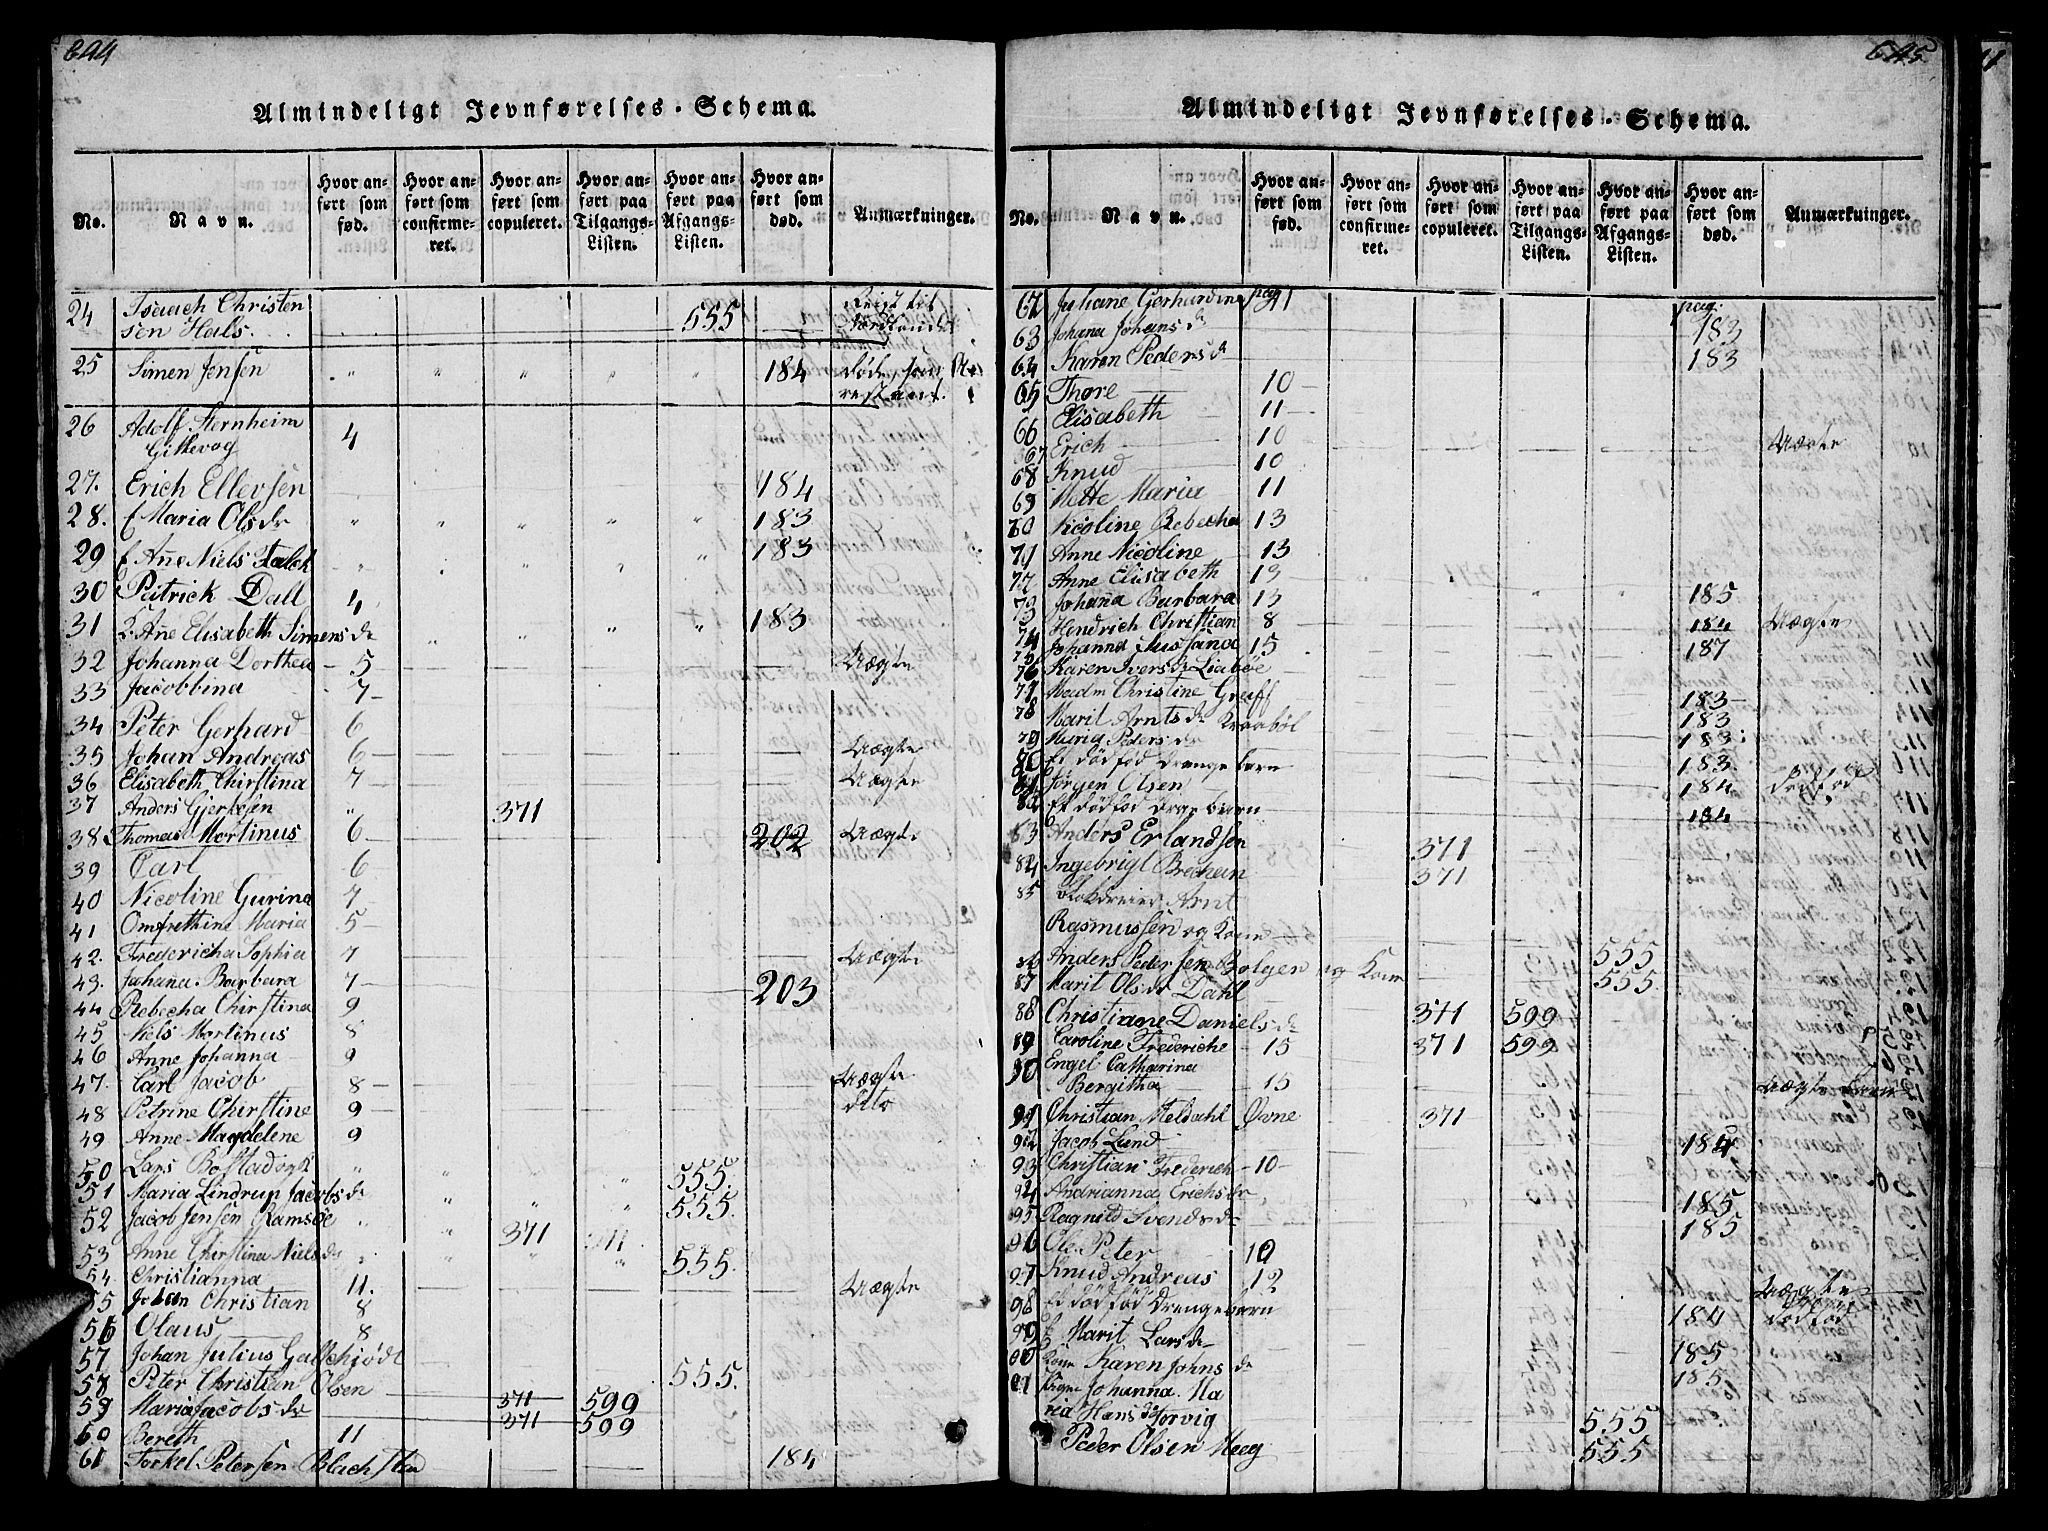 694
Almindeligt Jevnførelses-Schema.
No. Navn. Hvor anført som fød. Hvor anført som confirmeret. Hvor anført som copuleret. Hvor anført paa Tilgangs-Listen. Hvor anført paa Afgangs-Listen. Hvor anført som død. Anmærkninger.
24 Isaach Christen Reist til
sen Hals. 555 Nordland
25 Simen Jensen 184
26 Adolf Sternheim 4
Gittevog
27. Erich Ellevsen 184
28. Maria Olsdr 183
29 Ane Niels Falck 183
30 Peitrick Dall 4
31 Ane Elisabeth Simensdr 183
32 Johanna Dorthea 5 Uægte
33 Jacobbina 7
34 Peter Gerhard 6
35 Johan Andreas 6 Uægte
36 Elisabeth Chirstina 7 Uægte
37 Anders Gertsen 371
38 Thomas Mortinus 6 202 Uægte
39 Carl 6
40 Nicoline Gurina 7
41 Omfrethine Maria 5
42. Fredericha Sophia 7 Uægte
43. Johana Barbara 7 203
44 Rebecha Chirstina 9
45 Niels Mortinus 8
46 Anne Johanna 9
47. Carl Jacob 8 Uægte
48 Petrine Chirstine 9 dito
49 Anne Magdelene 9
50 Lars 555.
51 Maria Lindrup Jacobsdr 555.
52 Jacob Jensen Ramsøe 371
53 Anne Chirstina Nielsdr 555.
54. Christianna 11. Uægte
55 Johan Christian 8
56 Olaus 8
57 Johan Julius Galschiødt 555.
58 Peter Christian Olsen 371 599
59 Maria Jacobsdr 371 599
60 Bereth 11
61 Torkel Petersen 184
645
Almindeligt Jevnførelses-Schema.
No. Navn. Hvor anført som fød. Hvor anført som confirmeret. Hvor anført som copuleret. Hvor anført paa Tilgangs-Listen. Hvor anført paa Afgangs-Listen. Hvor anført som død. Anmærkninger.
62 Juliane Gerhardine pag 11 pag.
63 Johana Johansdr 183
64 Karen Pedersdr 183
65 Thore 10
66 Elisabeth 11
67 Erich 10 Uægte
68 Knud 10
69 Mette Maria 11
70 Nicoline Rebecha 13
71 Anne Nicoline 13
72 Anne Elisabeth 13
73 Johana Barbara 13 185
74 Hendrich Christian 8 184 Uægte
75 Johanna Sussana 15 187
76 Karen Iversdr Liabøe
77 Madm Christine Greiff 183
78 Marit Arntsdr 183
79 Maria Pedersdr 183
80 Et dødfød drengebarn 183.
81 Jørgen Olsen 184 dødfød
82 Et dødfød 184
83 Anders Erlandsen 371
84 Ingebrigt 371
85 Arnt
Rasmussen og Kone 555
86 Anders Pedersen Bolgen og Kone 555
87 Marit Olsdr Dahl
88 Christiane Danielsdr 371 599
89 Caroline Frederiche 15 371 599
90 Engel Catharina
Bergitha 15 Uægte Barn
91 Christian Meldahl Øvne 371
92 Jacob Lund 184
93 Christian Frederich 10
94 Andrianna Erichsdr 185
95 Ragnild Svendsdr 185
96 Ole Peter 10
97 Knud Andreas 12 Uægte
98 Et dødfød Drengebarn 184 dødfød
99 Marit Larsdr 185
Karen Johnsdr 185
Johanna Ma
ria Hansdr Torvig 555
Peder Olsen 555